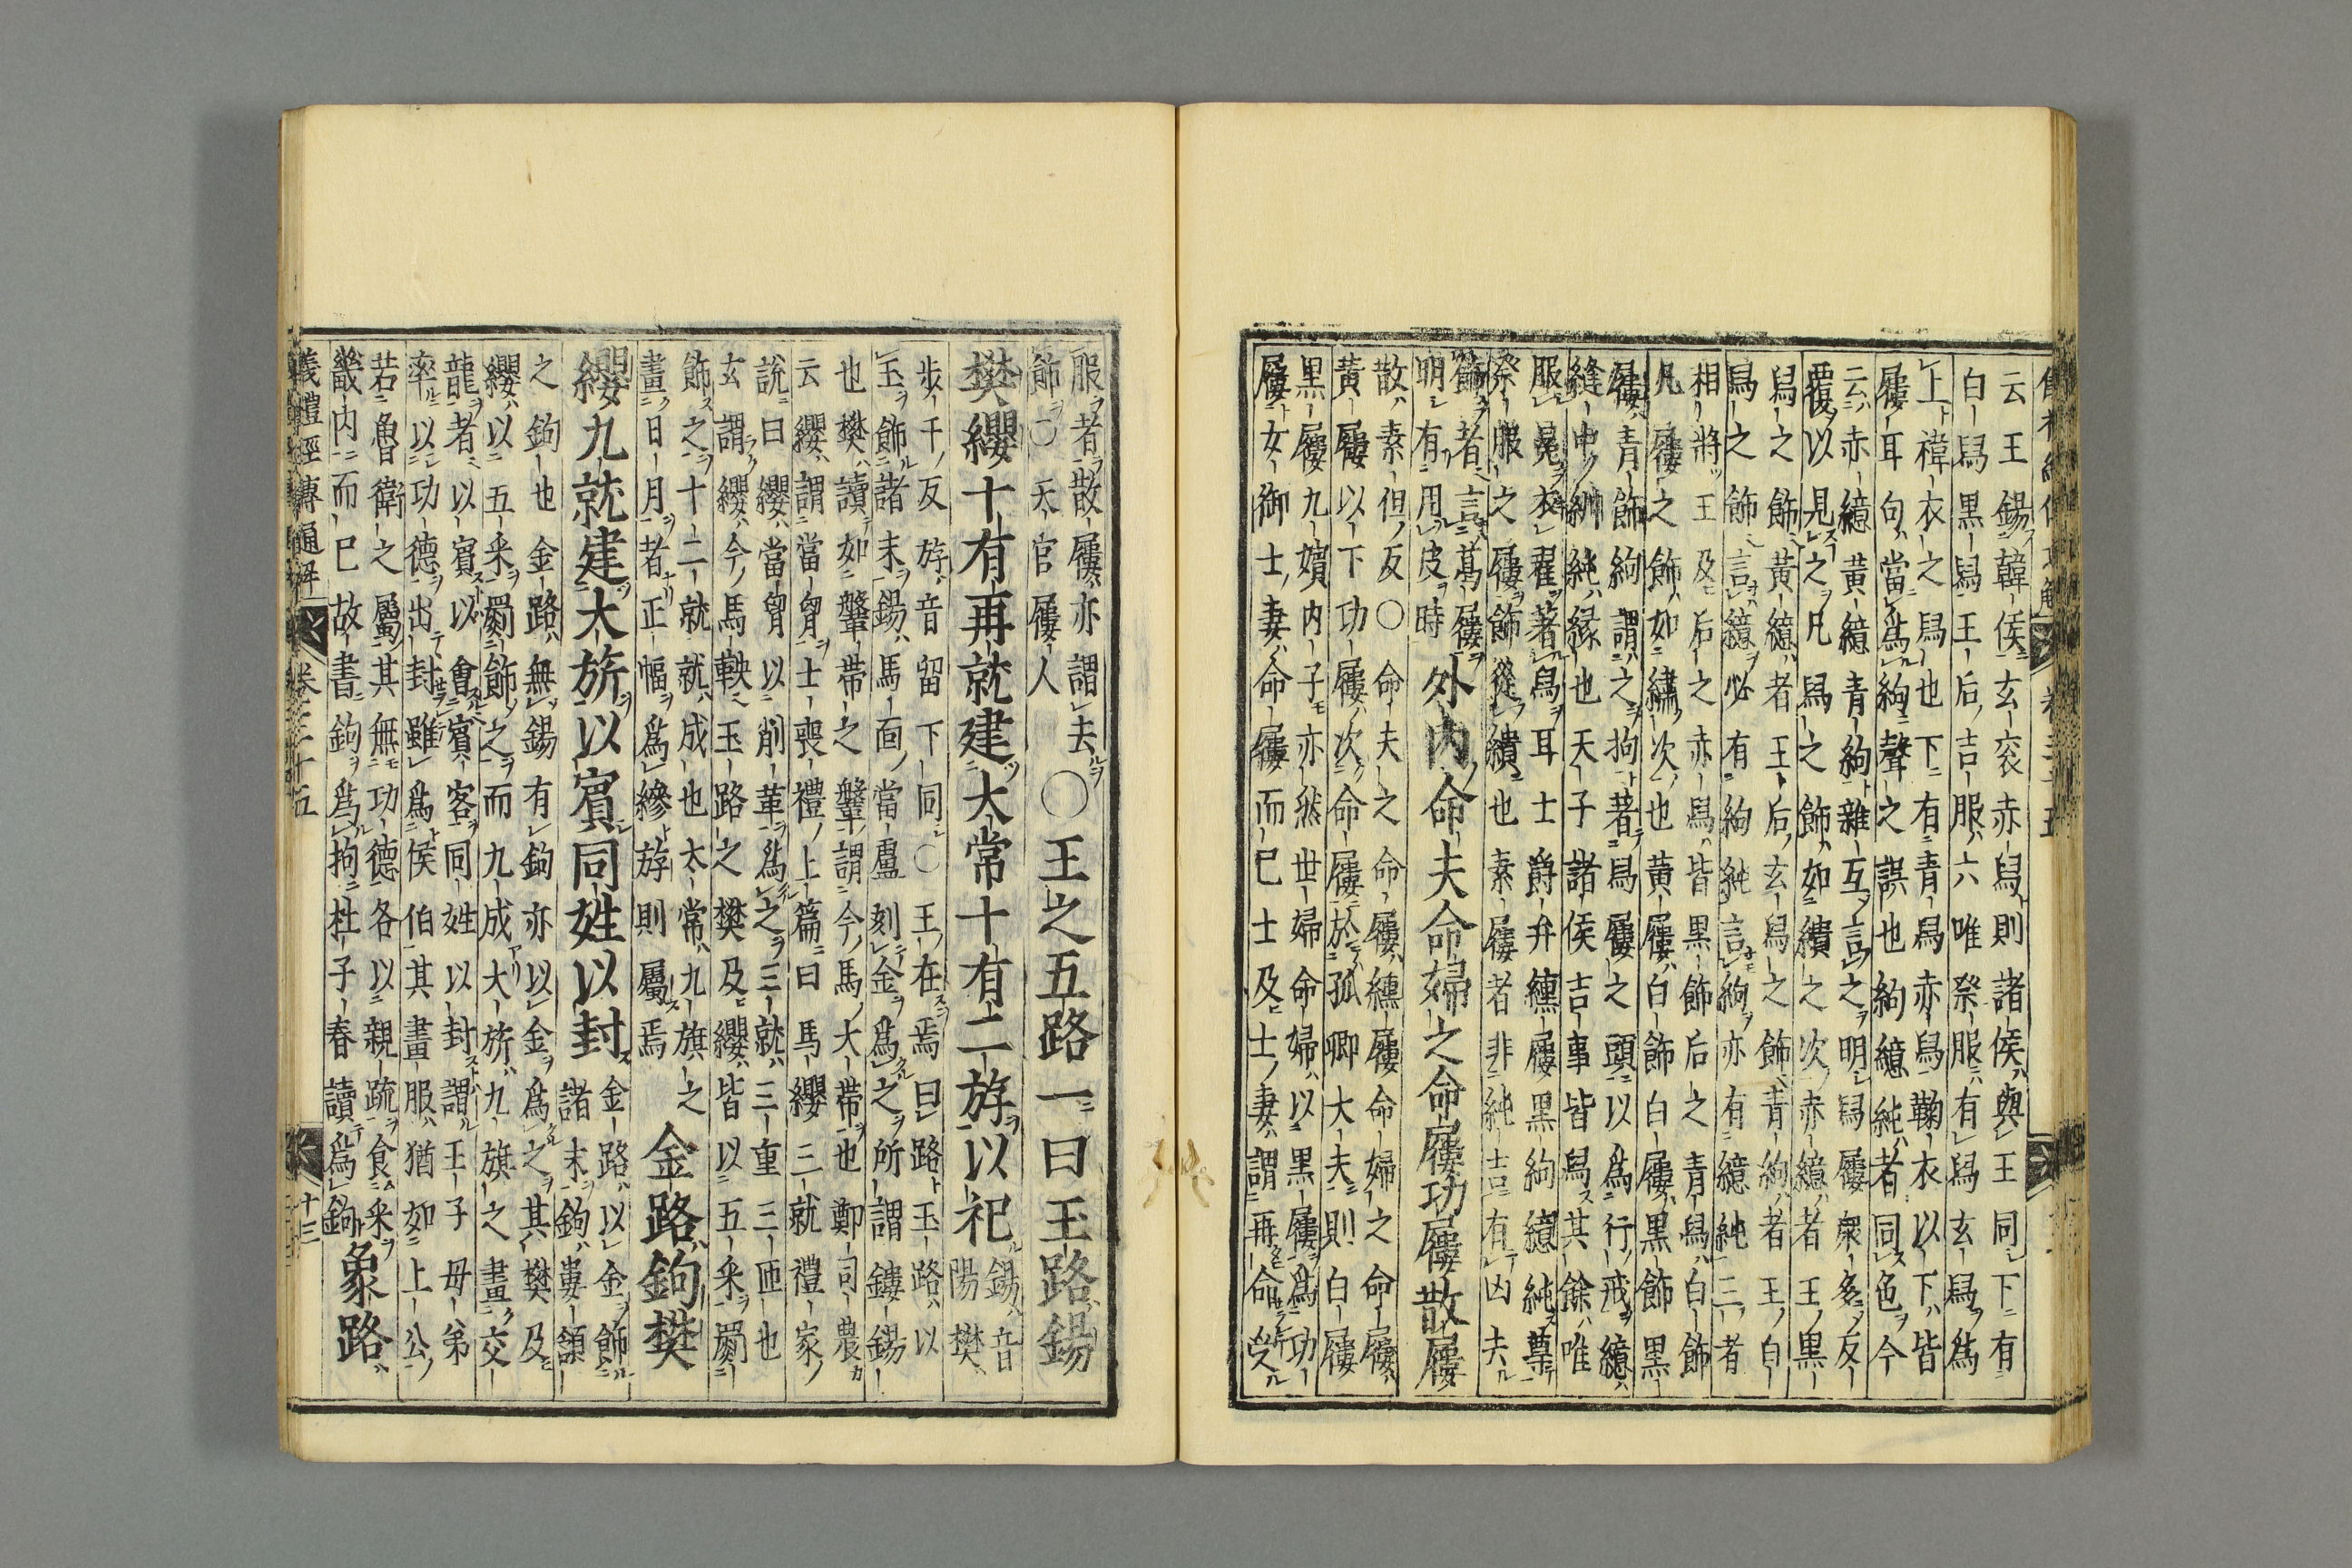 云王錫韓侯玄衮赤舄則諸侯與王同下有
白舄黑舄王后吉服六唯祭服有舄玄舄爲
上褘衣之舄也下有青舄赤舄鞠衣以下皆
屨耳句當爲絇聲之誤也絇繶純者同色今
云赤繶黃繶青絇雜互言之明舄屨衆多反
覆以見之凡舄之飾如繢之次赤繶者王黑
舄之飾黃繶者王后玄舄之飾青絇者王白
舄之飾言繶必有絇純言絇亦有繶純三者
相將王及后之赤舄皆黑飾后之青舄白飾
凡屨之飾如繡次也黃屨白飾白屨黑飾黑
屨青飾絇謂之拘著舄屨之頭以爲行戒繶
縫中紃純緣也天子諸侯吉事皆舄其餘唯
服冕衣翟著舄耳士爵弁纁屨黑絇繶純尊
祭服之屨飾從繢也素屨者非純吉有凶去
飾者言葛屨
明有用皮時
外內命夫命婦之命屨功屨散屨
散素但反○命夫之命屨纁屨命婦之命屨
黃屨以下功屨次命屨於孤卿大夫則白屨
黑屨九嬪內子亦然世婦命婦以黑屨爲功
屨女御士妻命屨而已士及士妻謂再命受
服者散屨亦謂去
飾○天官屨人
○王之五路一曰玉路鍚
樊纓十有再就建大常十有二斿以祀
鍚音
陽樊
步干反斿音留下同○王在焉曰路玉路以
玉飾諸末鍚馬面當盧刻金爲之所謂鏤鍚
也樊讀如鞶帶之鞶謂今馬大帶也鄭司農
云纓謂當胷士喪禮上篇曰馬纓三就禮家
說曰纓當胷以削革爲之三就三重三匝也
玄謂纓今馬鞅玉路之樊及纓皆以五采罽
飾之十二就就成也太常九旗之
畫日月者正幅爲縿斿則屬焉
金路鉤樊
纓九就建大旂以賓同姓以封
金路以金飾
諸末鉤婁頷
之鉤也金路無鍚有鉤亦以金爲之其樊及
纓以五采罽飾之而九成大旂九旗之畫交
龍者以賓以會賓客同姓以封謂王子母弟
率以功德出封雖爲侯伯其畫服猶如上公
若魯衛之屬其無功德各以親疏食采
畿內而已故書鉤爲拘杜子春讀爲鉤
象路
儀禮經傳通解 卷三十五 十三